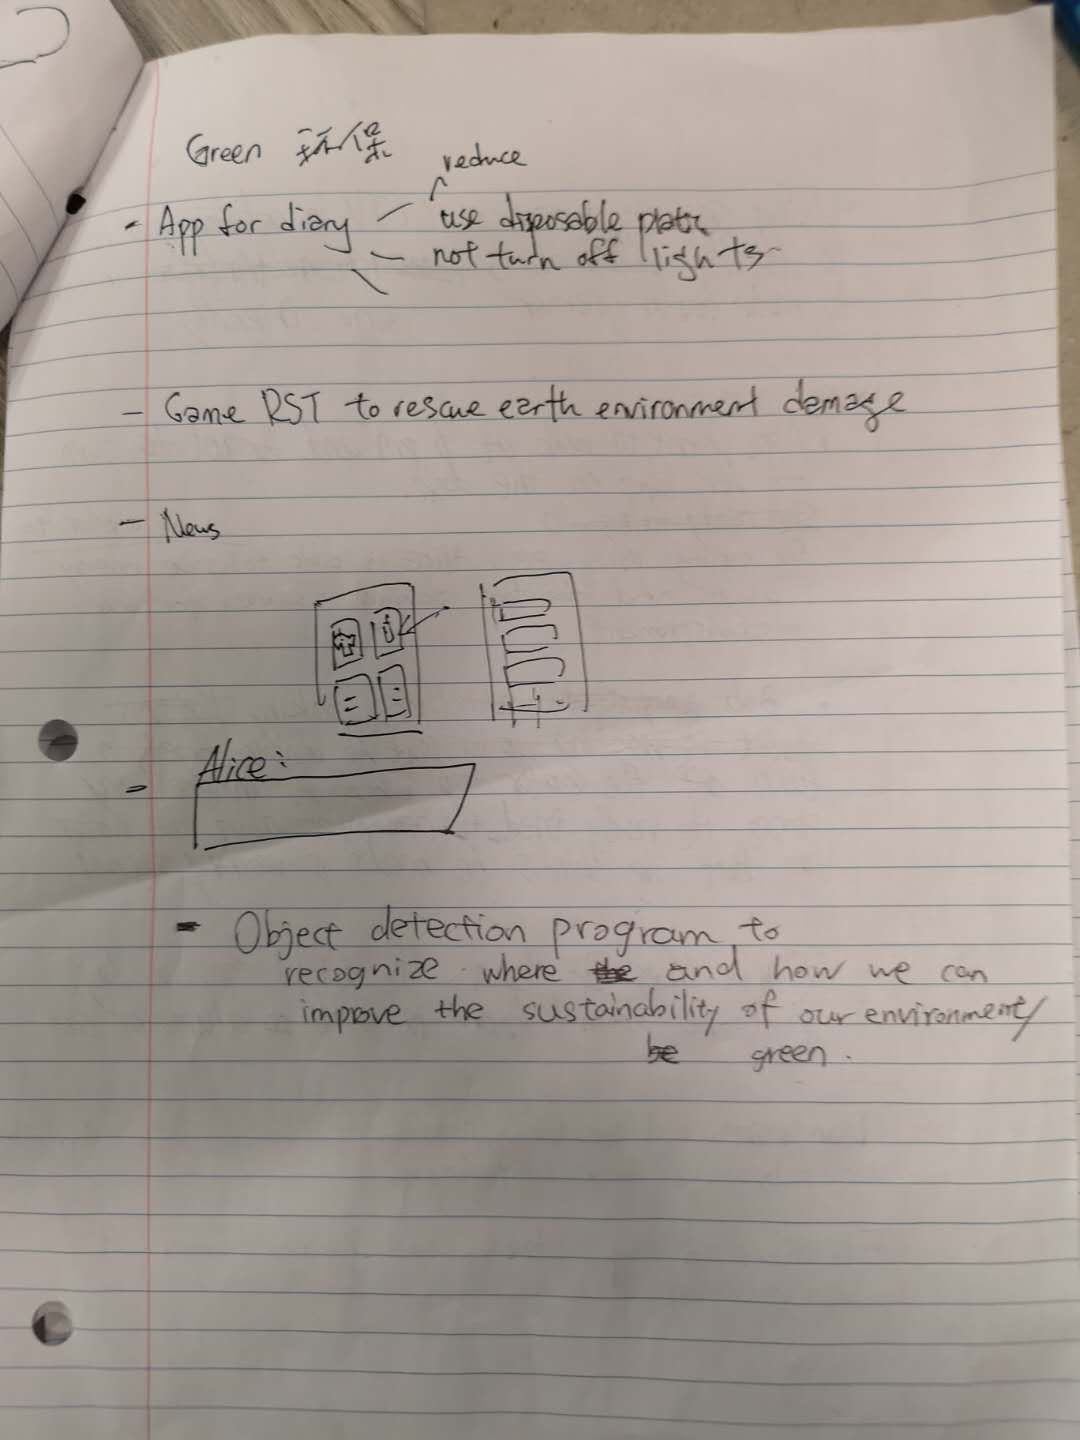 Green 环保
reduce
- App for diary - use disposable plate
- not turn off lights
- Game RST to rescue earth environment damage
- News
- Alice:
- Object detection program to
recognize where the and how we can
improve the sustainability of our environment/
be green.